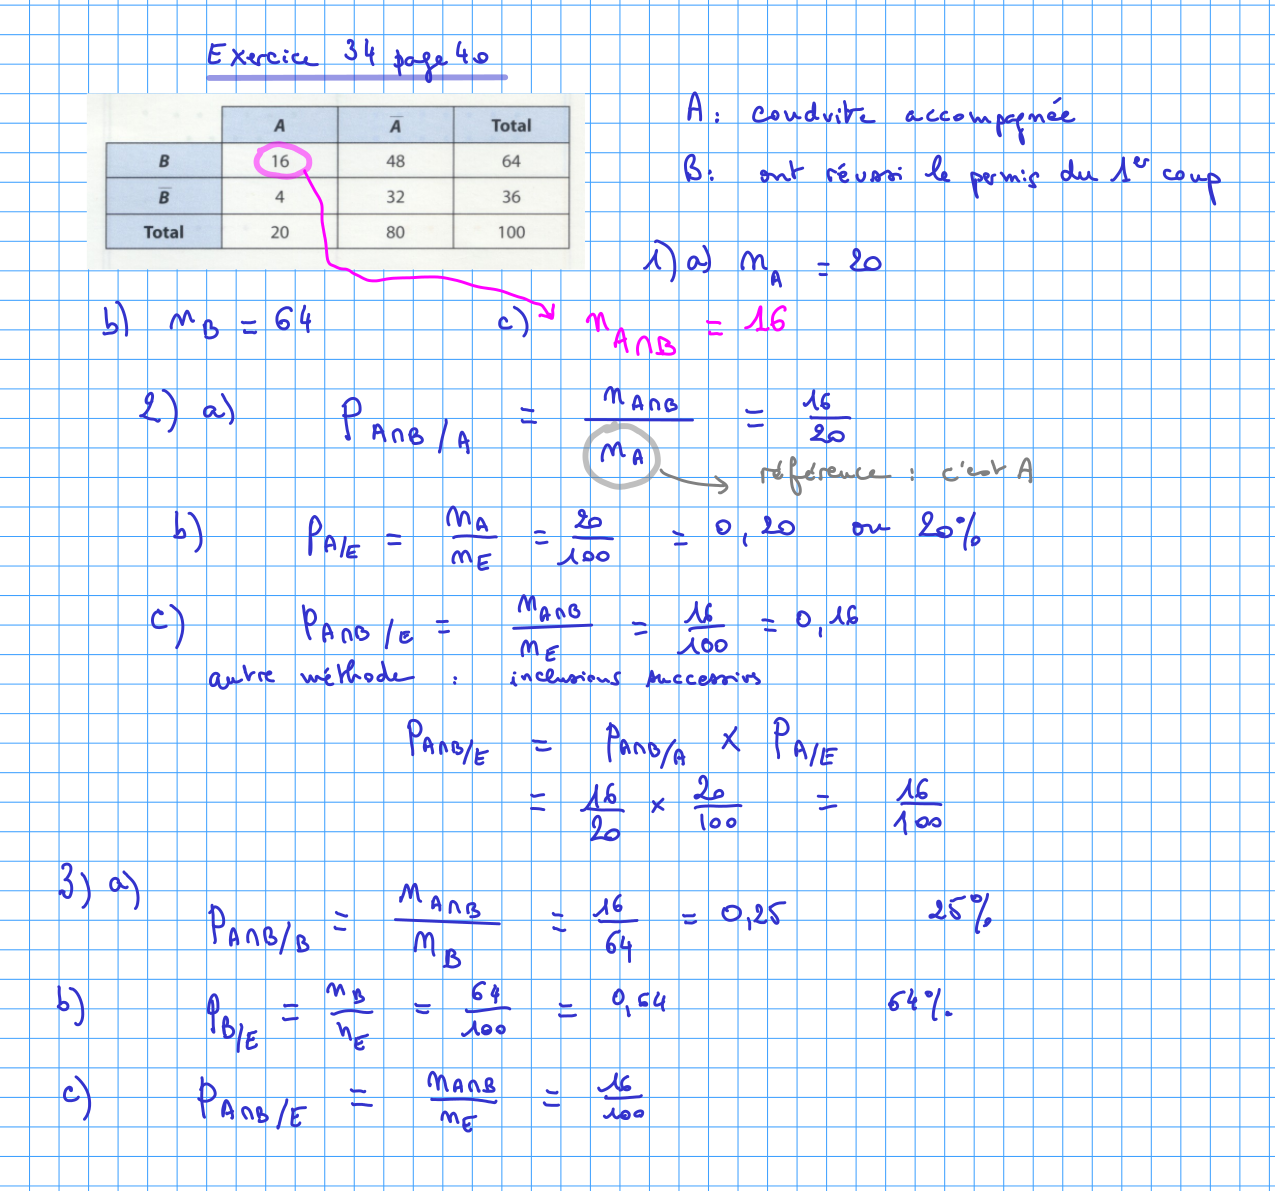 Exercice 34 page 40
A A̅ Total
B 16 48 64
B̅ 4 32 36
Total 20 80 100
A : conduite accompagnée
B : ont réussi le permis du 1er coup
1) a) n_A = 20
b) n_B = 64 c) n_A∩B = 16
2) a) P_A∩B/A = n_A∩B / n_A = 16/20
référence : c'est A
b) P_A/E = n_A / n_E = 20/100 = 0,20 ou 20%
c) P_A∩B/E = n_A∩B / n_E = 16/100 = 0,16
autre méthode : inclusions successives
P_A∩B/E = P_A∩B/A × P_A/E
= 16/20 × 20/100 = 16/100
3) a) P_A∩B/B = n_A∩B / n_B = 16/64 = 0,25 25%
b) P_B/E = n_B / n_E = 64/100 = 0,64 64%
c) P_A∩B/E = n_A∩B / n_E = 16/100